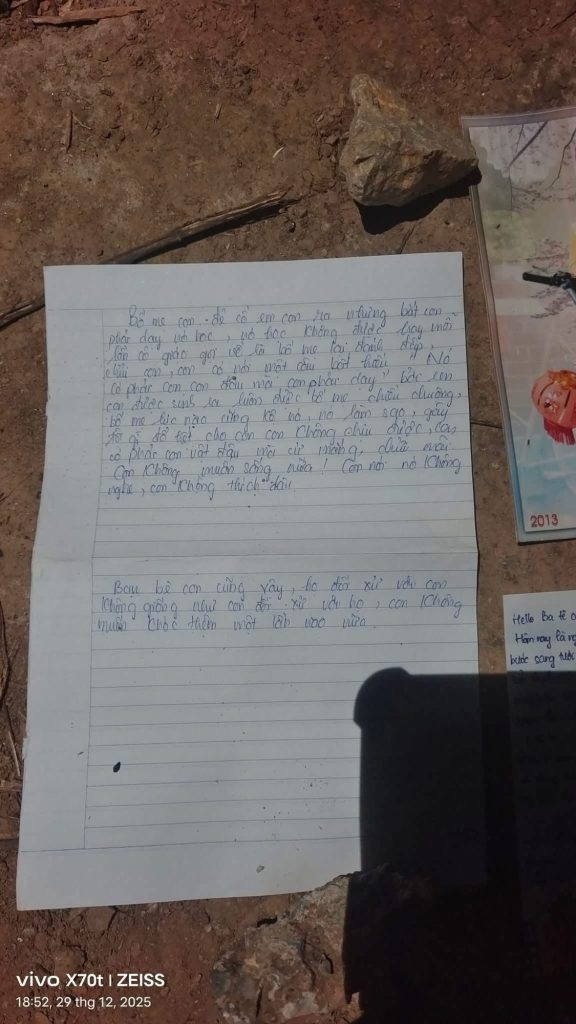 Bố mẹ con đẻ cả em con ra nhưng bắt con
phải dạy nó học, nó học không được hay mỗi
lần cô giáo gọi về là bố mẹ lại đánh đập,
chửi con, con có nói một câu bất hiếu "Nó
có phải con con đâu mà con phải dạy", bức em
con được sinh ra luôn được bố mẹ chiều chuộng,
bố mẹ lúc nào cũng kệ nó, nó làm sao, gây
ra gì đổ tội cho con con không chịu được,
có phải con vật đâu mà cứ mắng, chửi mãi.
Con không muốn sống nữa! Con nói nó không
nghe, con không thích đâu.
Bạn bè con cũng vậy, họ đối xử với con
không giống như con đối xử với họ, con không
muốn khóc thêm một lần nào nữa.
2013
Hello Ba tê
Hôm nay là
bước sang
vivo X70t | ZEISS
18:52, 29 thg 12, 2025